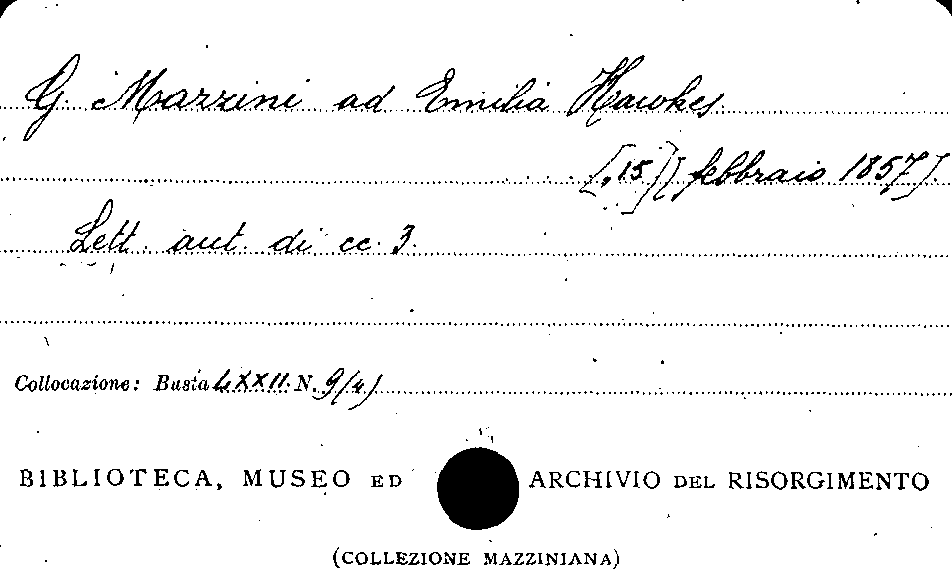 G. Mazzini ad Emilia Hawkes
[15] [febbraio 1857].
Lett. aut. di cc. 3.
Collocazione: Busta LXXII. N. 9/(4)
BIBLIOTECA, MUSEO ED ARCHIVIO DEL RISORGIMENTO
(COLLEZIONE MAZZINIANA)